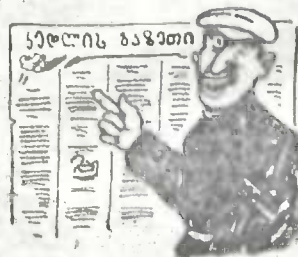 კედლის გაზეთი